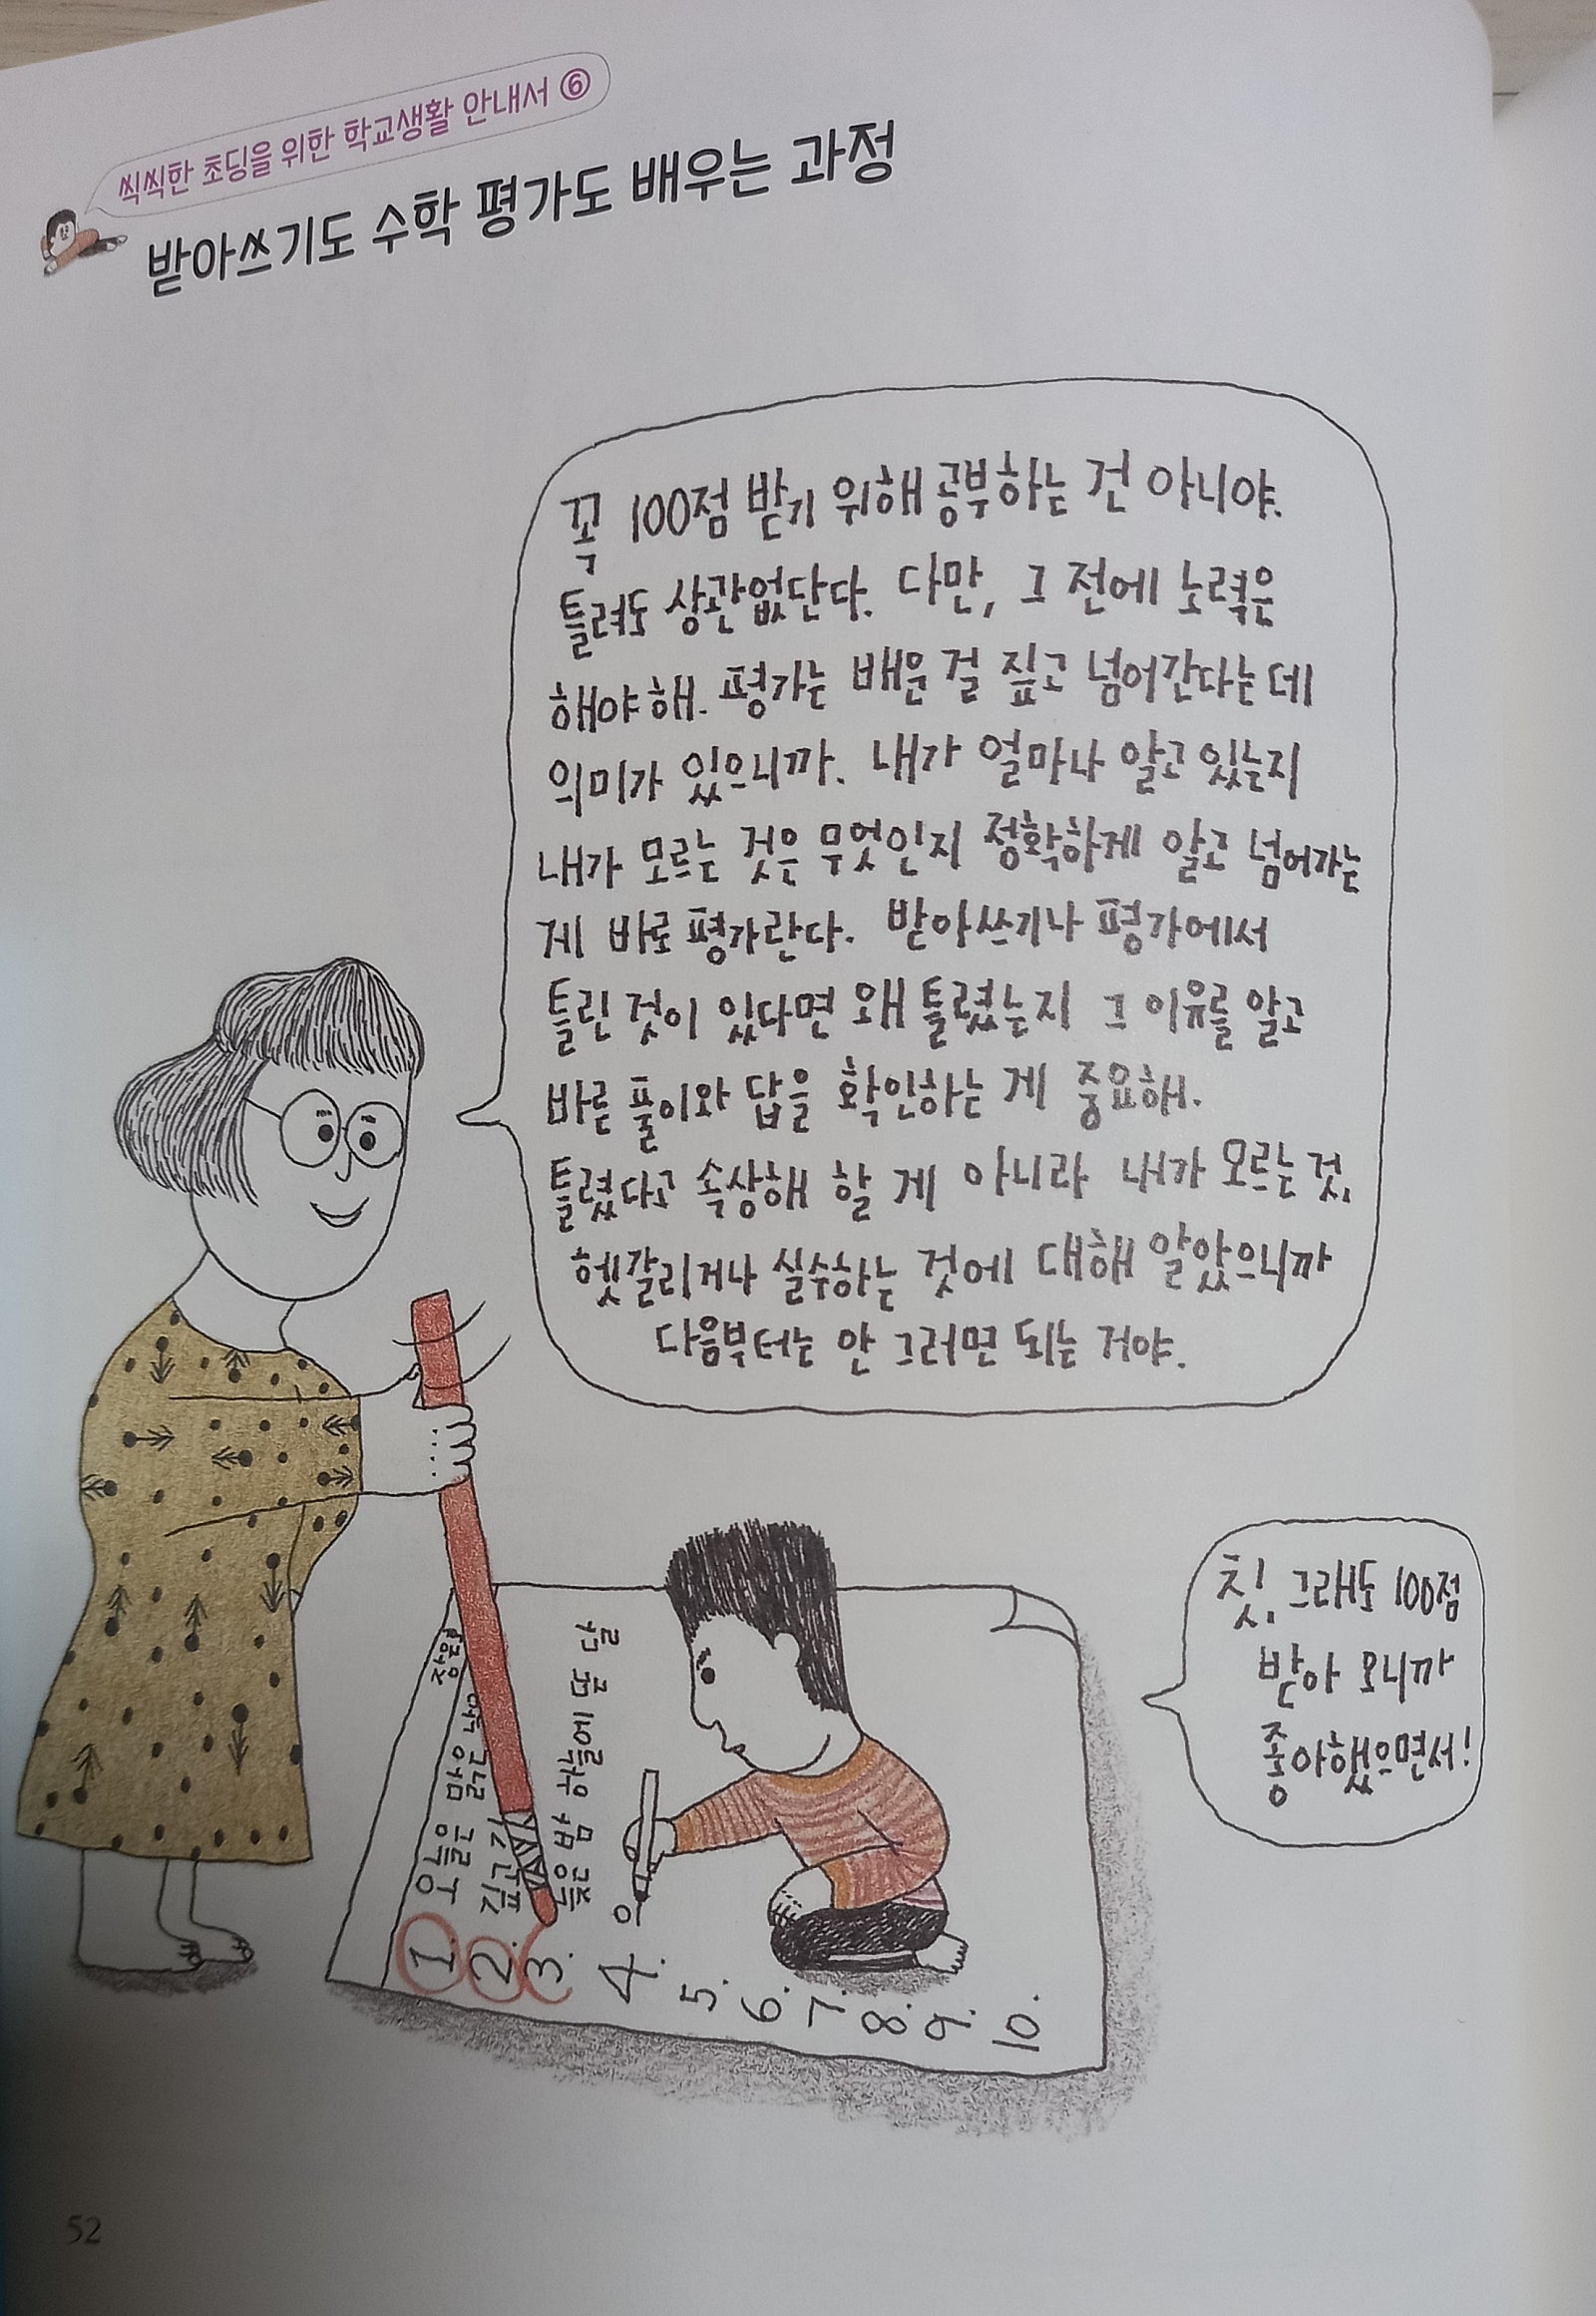 씩씩한 초딩을 위한 학교생활 안내서 ⑥
받아쓰기도 수학 평가도 배우는 과정
꼭 100점 받기 위해 공부하는 건 아니야.
틀려도 상관없단다. 다만, 그 전에 노력은
해야 해. 평가는 배운 걸 짚고 넘어간다는 데
의미가 있으니까. 내가 얼마나 알고 있는지
내가 모르는 것은 무엇인지 정확하게 알고 넘어가는
게 바로 평가란다. 받아쓰기나 평가에서
틀린 것이 있다면 왜 틀렸는지 그 이유를 알고
바른 풀이와 답을 확인하는 게 중요해.
틀렸다고 속상해 할 게 아니라 내가 모르는 것,
헷갈리거나 실수하는 것에 대해 알았으니까
다음부터는 안 그러면 되는 거야.
칫, 그래도 100점
받아 오니까
좋아했으면서!
1.
2.
3.
4.
5.
6.
7.
8.
9.
10.
52